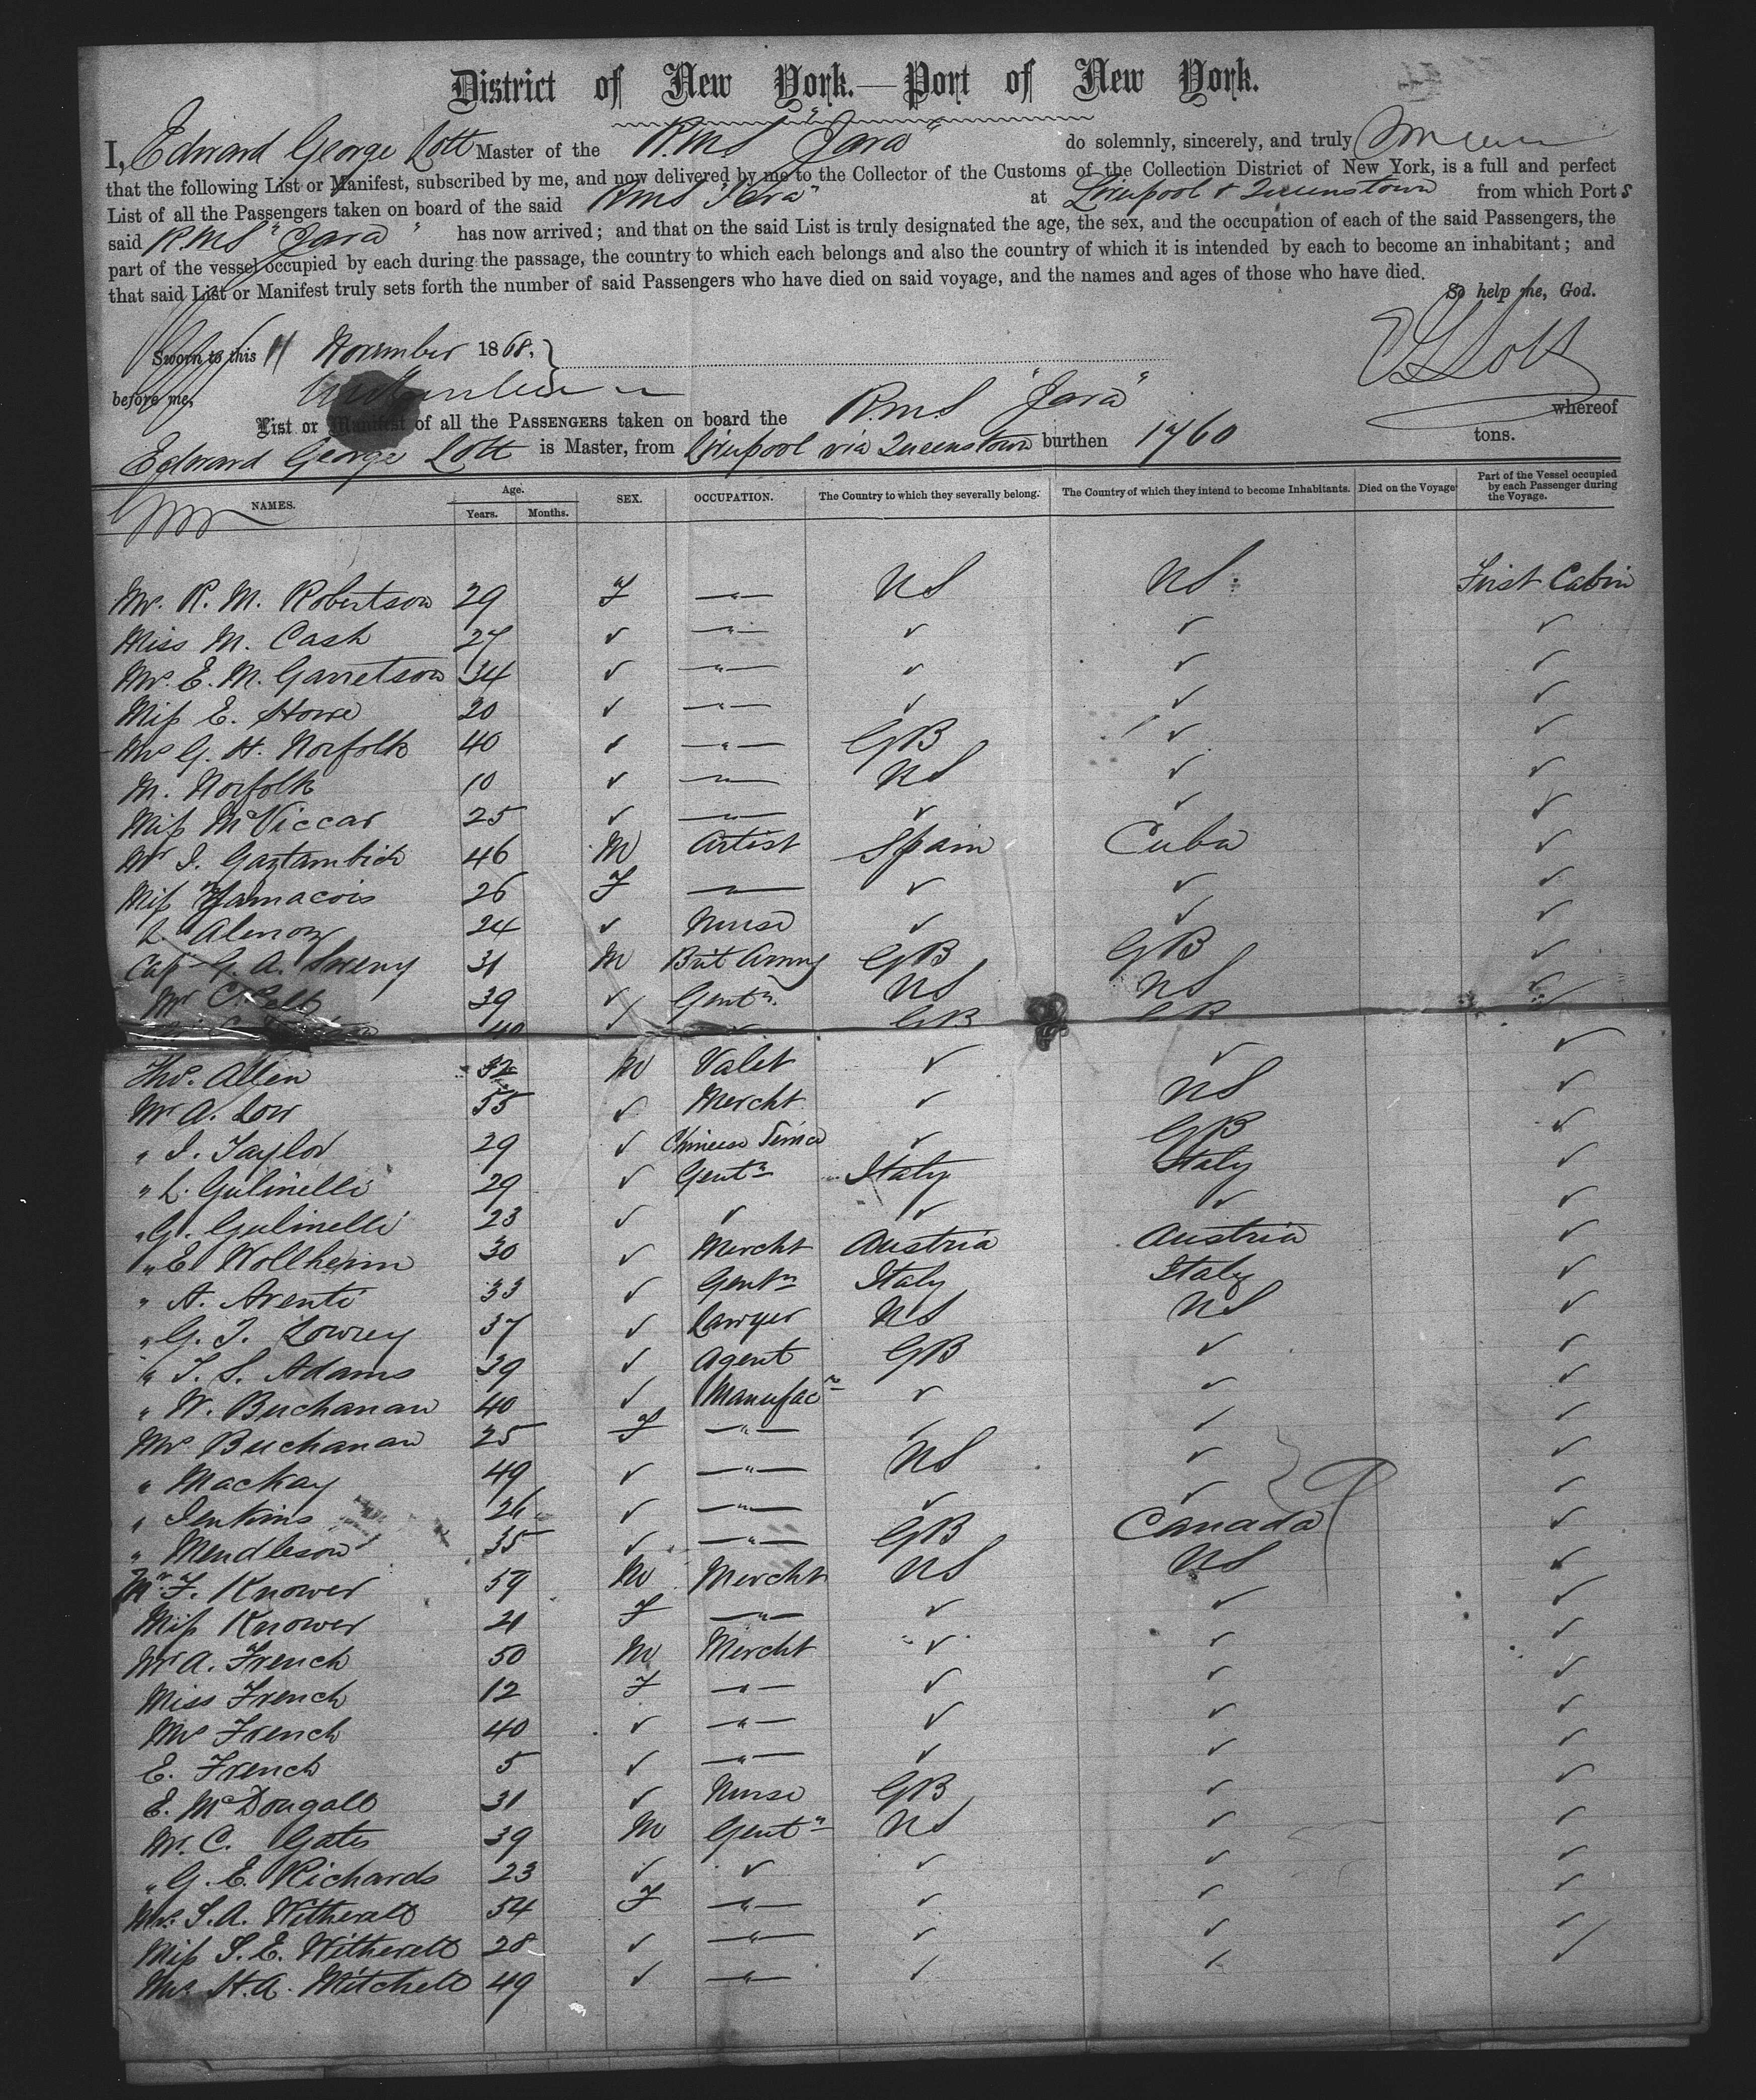 District of New York.—Port of New York.
I, Edward George Lott Master of the R.M.S "Java" do solemnly, sincerely, and truly
that the following List or Manifest, subscribed by me, and now delivered by me to the Collector of the Customs of the Collection District of New York, is a full and perfect
List of all the Passengers taken on board of the said RMS "Java" at Liverpool & Queenstown from which Port s
said RMS "Java" has now arrived; and that on the said List is truly designated the age, the sex, and the occupation of each of the said Passengers, the
part of the vessel occupied by each during the passage, the country to which each belongs and also the country of which it is intended by each to become an inhabitant; and
that said List or Manifest truly sets forth the number of said Passengers who have died on said voyage, and the names and ages of those who have died.
So help me, God.
Sworn to this 11 November 1868. EGLott
before me,
List or Manifest of all the PASSENGERS taken on board the R.M.S "Java" whereof
Edward George Lott is Master, from Liverpool via Queenstown burthen 1760 tons.
NAMES. Age. Years. Months. SEX. OCCUPATION. The Country to which they severally belong. The Country of which they intend to become Inhabitants. Died on the Voyage Part of the Vessel occupied by each Passenger during the Voyage.
Mrs. R. M. Robertson 29 F —"— US US First Cabin
Miss M. Cash 27 ✓ —"— ✓ ✓ ✓
Mrs. E. M. Garretson 34 ✓ —"— ✓ ✓ ✓
Miss E. Howe 20 ✓ —"— ✓ ✓ ✓
Mrs G. H. Norfolk 40 ✓ —"— GB ✓ ✓
M. Norfolk 10 ✓ —"— US ✓ ✓
Miss McViccar 25 ✓ —"— ✓ ✓ ✓
Mr J. Gaztambide 46 M Artist Spain Cuba ✓
Miss 26 F —"— ✓ ✓ ✓
L. 24 ✓ Nurse ✓ ✓ ✓
Cap G. A. Sweny 31 M Brit Army GB GB ✓
Mr C. 39 ✓ Gentn. US US ✓
40 ✓ ✓ GB GB ✓
Thos. Allen 32 M Valet ✓ ✓ ✓
Mr A. Low 55 ✓ Mercht ✓ US ✓
" J. Taylor 29 ✓ Chinese Service ✓ GB ✓
" L. Gulinelli 29 ✓ Gentn Italy Italy ✓
" G. Gulinelli 23 ✓ ✓ ✓ ✓ ✓
" E. Wollheim 30 ✓ Mercht Austria Austria ✓
" A. Aventi 33 ✓ Gentn Italy Italy ✓
" G. T. Lowrey 37 ✓ Lawyer US US ✓
" T. S. Adams 29 ✓ Agent GB ✓ ✓
" W. Buchanan 40 ✓ Manufacr ✓ ✓ ✓
Mrs Buchanan 25 F —"— ✓ ✓ ✓
" Mackay 49 ✓ —"— US ✓ ✓
" Jenkins 26 ✓ —"— ✓ ✓ ✓
" Mendleson 35 ✓ —"— GB Canada ✓
Mr. F. Knower 59 M Mercht US US ✓
Miss Knower 21 F —"— ✓ ✓ ✓
Mr A. French 50 M Mercht ✓ ✓ ✓
Miss French 12 F —"— ✓ ✓ ✓
Mrs French 40 ✓ —"— ✓ ✓ ✓
E. French 5 ✓ —"— ✓ ✓ ✓
E. McDougall 31 ✓ Nurse GB ✓ ✓
Mr. C. Gates 39 M Gentn US ✓ ✓
" G. E. Richards 23 ✓ ✓ ✓ ✓ ✓
Mrs. S. A. Witherell 54 F —"— ✓ ✓ ✓
Miss S. E. Witherell 28 ✓ —"— ✓ ✓ ✓
Mrs H. A. Mitchell 49 ✓ —"— ✓ ✓ ✓